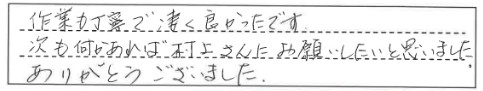 作業も丁寧で凄く良かったです。
次も何かあれば村上さんにお願いしたいと思いました。
ありがとうございました.